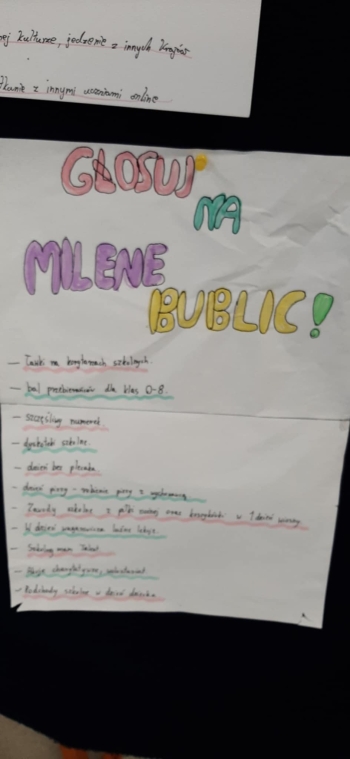 ej kulturze, jedzenie z innych krajów
tkanie z innymi uczniami online
GŁOSUJ
NA
MILENE
BUBLIC!
- Ławki na korytarzach szkolnych.
- bal przebierańców dla klas 0-8.
- szczęśliwy numerek.
- dyskoteki szkolne.
- dzień bez plecaka.
- dzień pizzy - robienie pizzy z
- Zawody szkolne z piłki nożnej oraz koszykówki w 1 dzień wiosny.
- W dzień wagarowicza luźne lekcje.
- Szkolny mam Talent.
- Akcje charytatywne, wolontariat.
- Podchody szkolne w dzień dziecka.